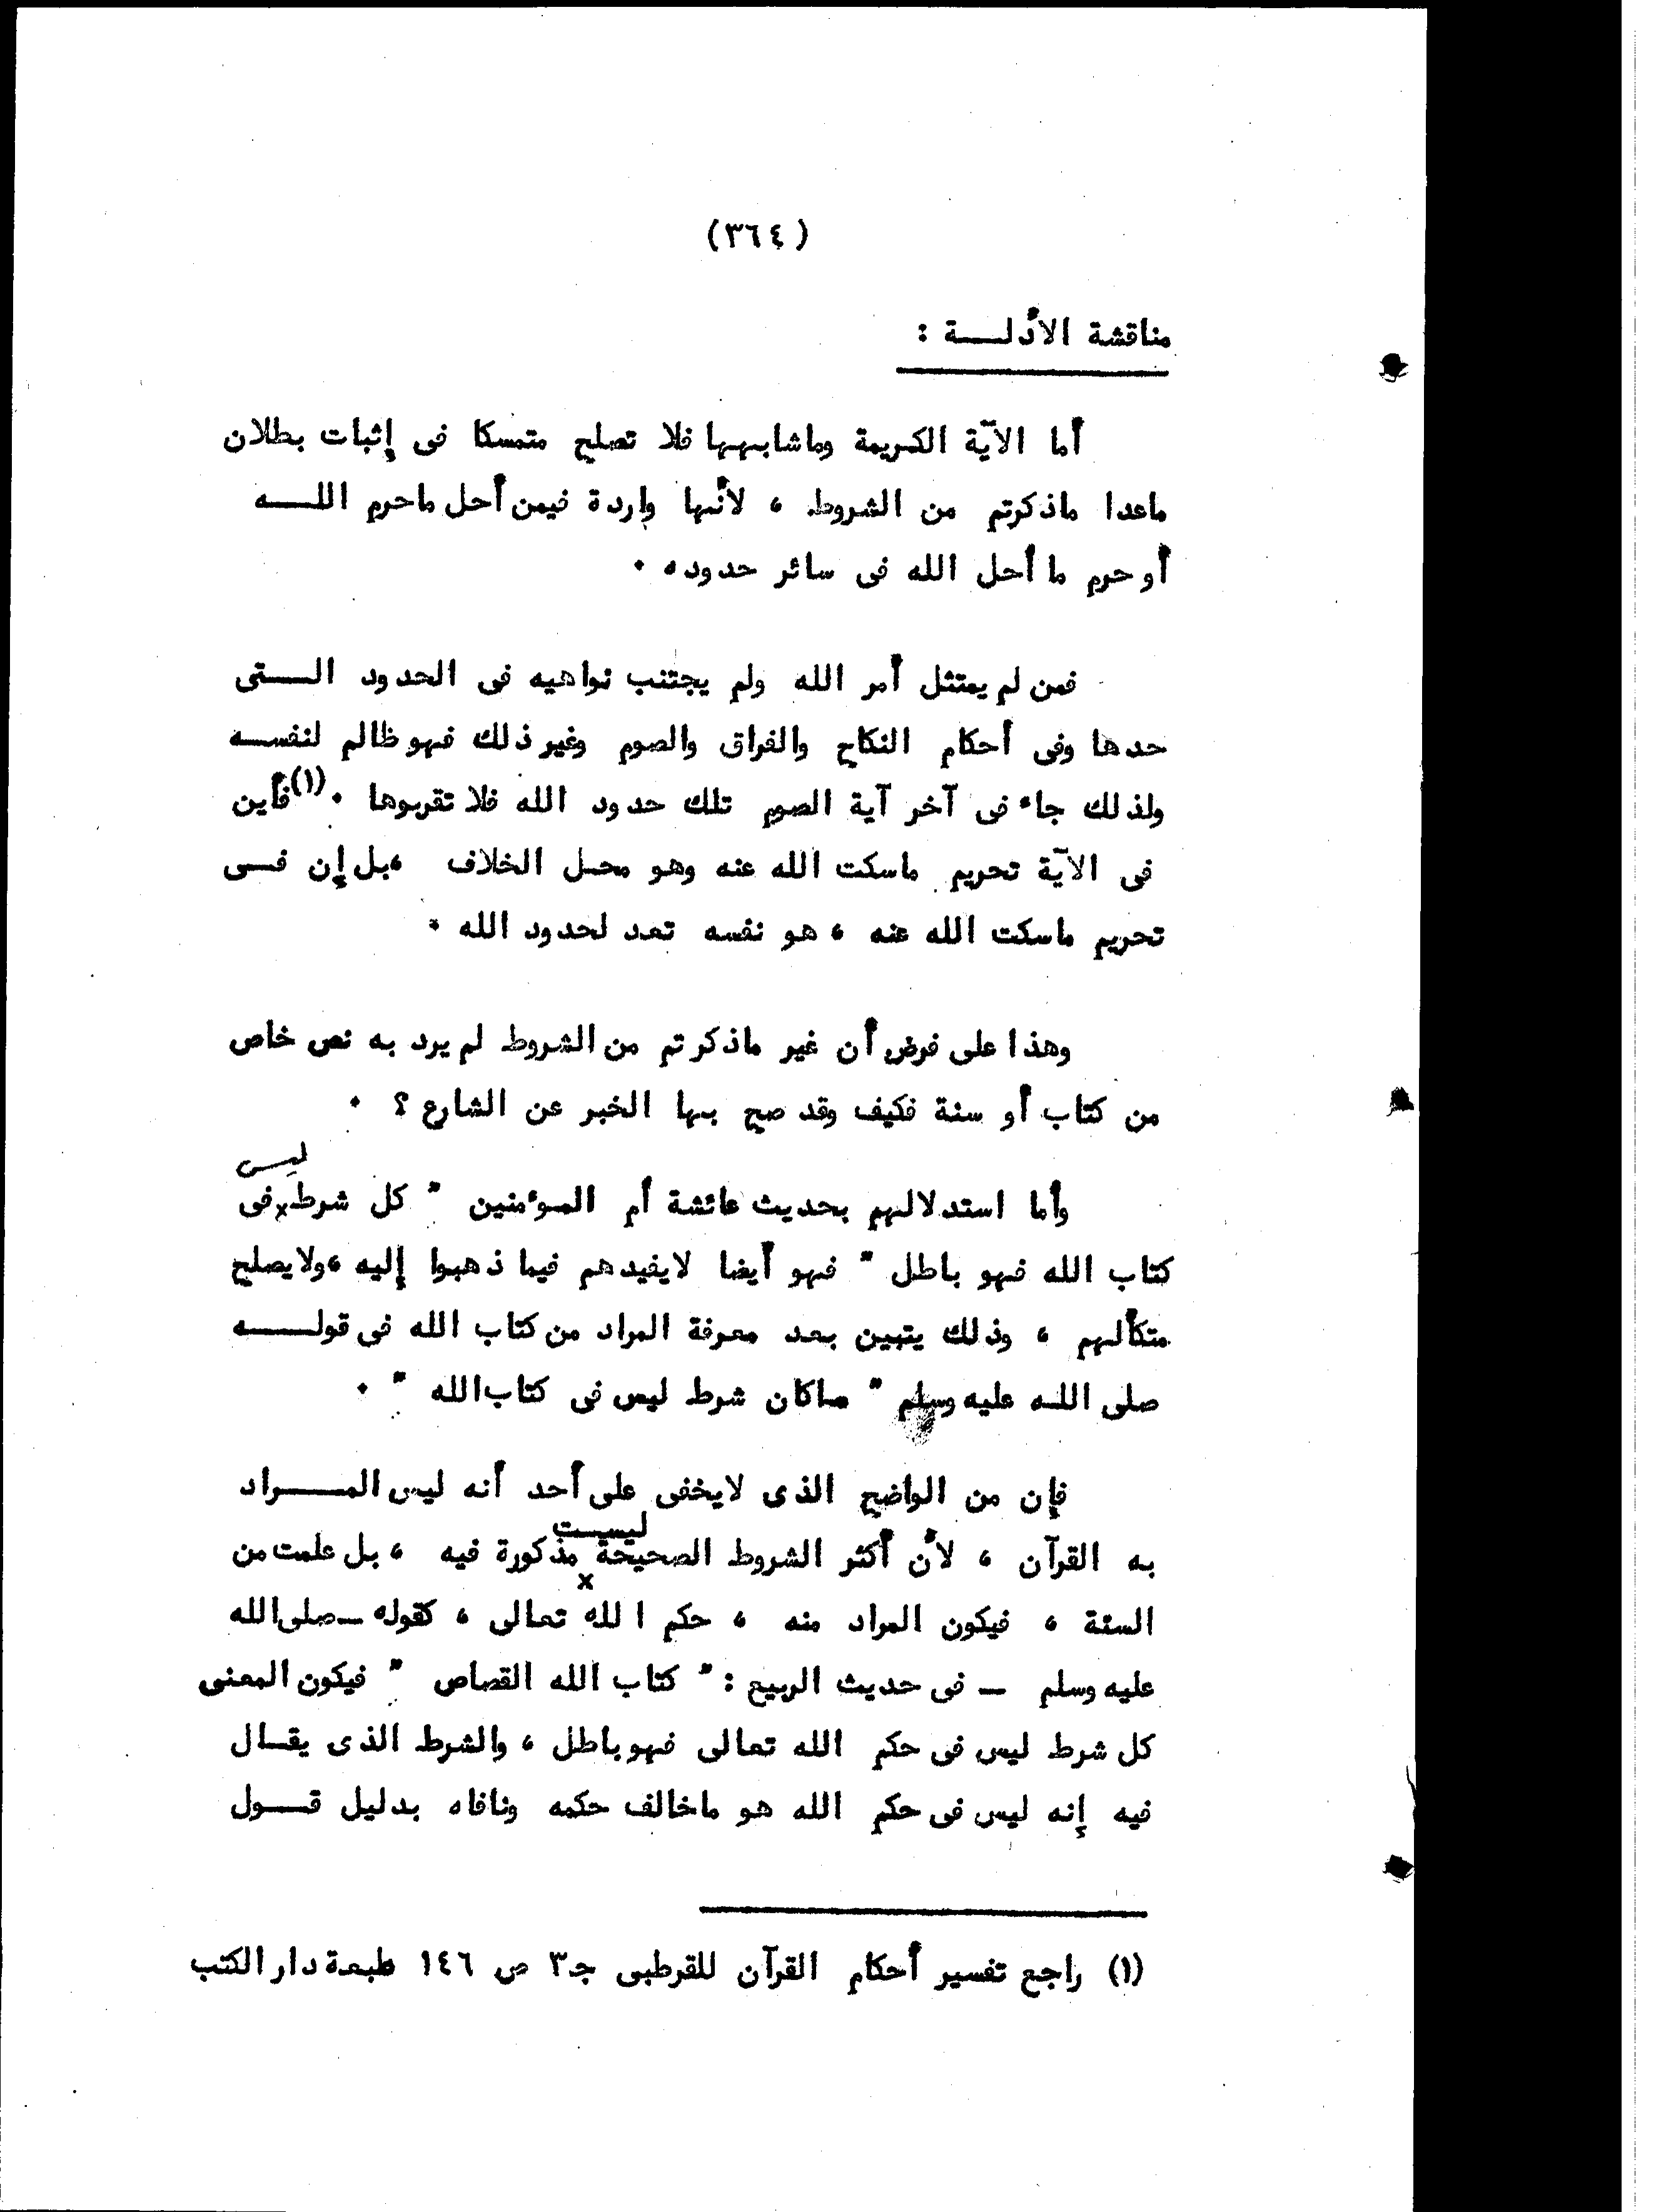 (٣٦٤)
مناقشة الأدلــــة :
أما الآية الكريمة وماشابهها فلا تصلح متمسكا فى إثبات بطلان
ماعدا ماذكرتم من الشروط ، لأنها واردة فيمن أحل ماحرم اللـــه
أو حرم ما أحل الله فى سائر حدوده ٠
فمن لم يمتثل أمر الله ولم يجتنب نواهيه فى الحدود الـــتى
حدها وفى أحكام النكاح والفراق والصوم وغير ذلك فهو ظالم لنفســه
ولذلك جاء فى آخر آية الصوم تلك حدود الله فلا تقربوها ٠(١) فأين
فى الآية تحريم ماسكت الله عنه وهو محـل الخلاف ،بل إن فـــى
تحريم ماسكت الله عنه ، هو نفسه تعد لحدود الله ٠
وهذا على فرض أن غير ماذكرتم من الشروط لم يرد به نص خاص
من كتاب أو سنة فكيف وقد صح بها الخبر عن الشارع ؟ ٠
وأما استدلالهم بحديث عائشة أم المؤمنين " كل شرط ليس فى
كتاب الله فهو باطل " فهو أيضا لايفيدهم فيما ذهبوا إليه ،ولايصلح
متكألهم ، وذلك يتبين بعد معرفة المراد من كتاب الله فى قولـــــه
صلى اللـه عليه وسلم " ماكان شرط ليس فى كتاب الله " ٠
فإن من الواضح الذى لايخفى على أحد أنه ليس المـــــراد
به القرآن ، لأن أكثر الشروط الصحيحة ليست مذكورة فيه ، بل علمت من
السنة ، فيكون المراد منه ، حكم الله تعالى ، كقوله ــ صلى الله
عليه وسلم ــ فى حديث الربيع : " كتاب الله القصاص " فيكون المعنى
كل شرط ليس فى حكم الله تعالى فهو باطل ، والشرط الذى يقــال
فيه إنه ليس فى حكم الله هو ماخالف حكمه ونافاه بدليل قـــول
(١) راجع تفسير أحكام القرآن للقرطبى جـ٣ ص ١٤٦ طبعة دار الكتب